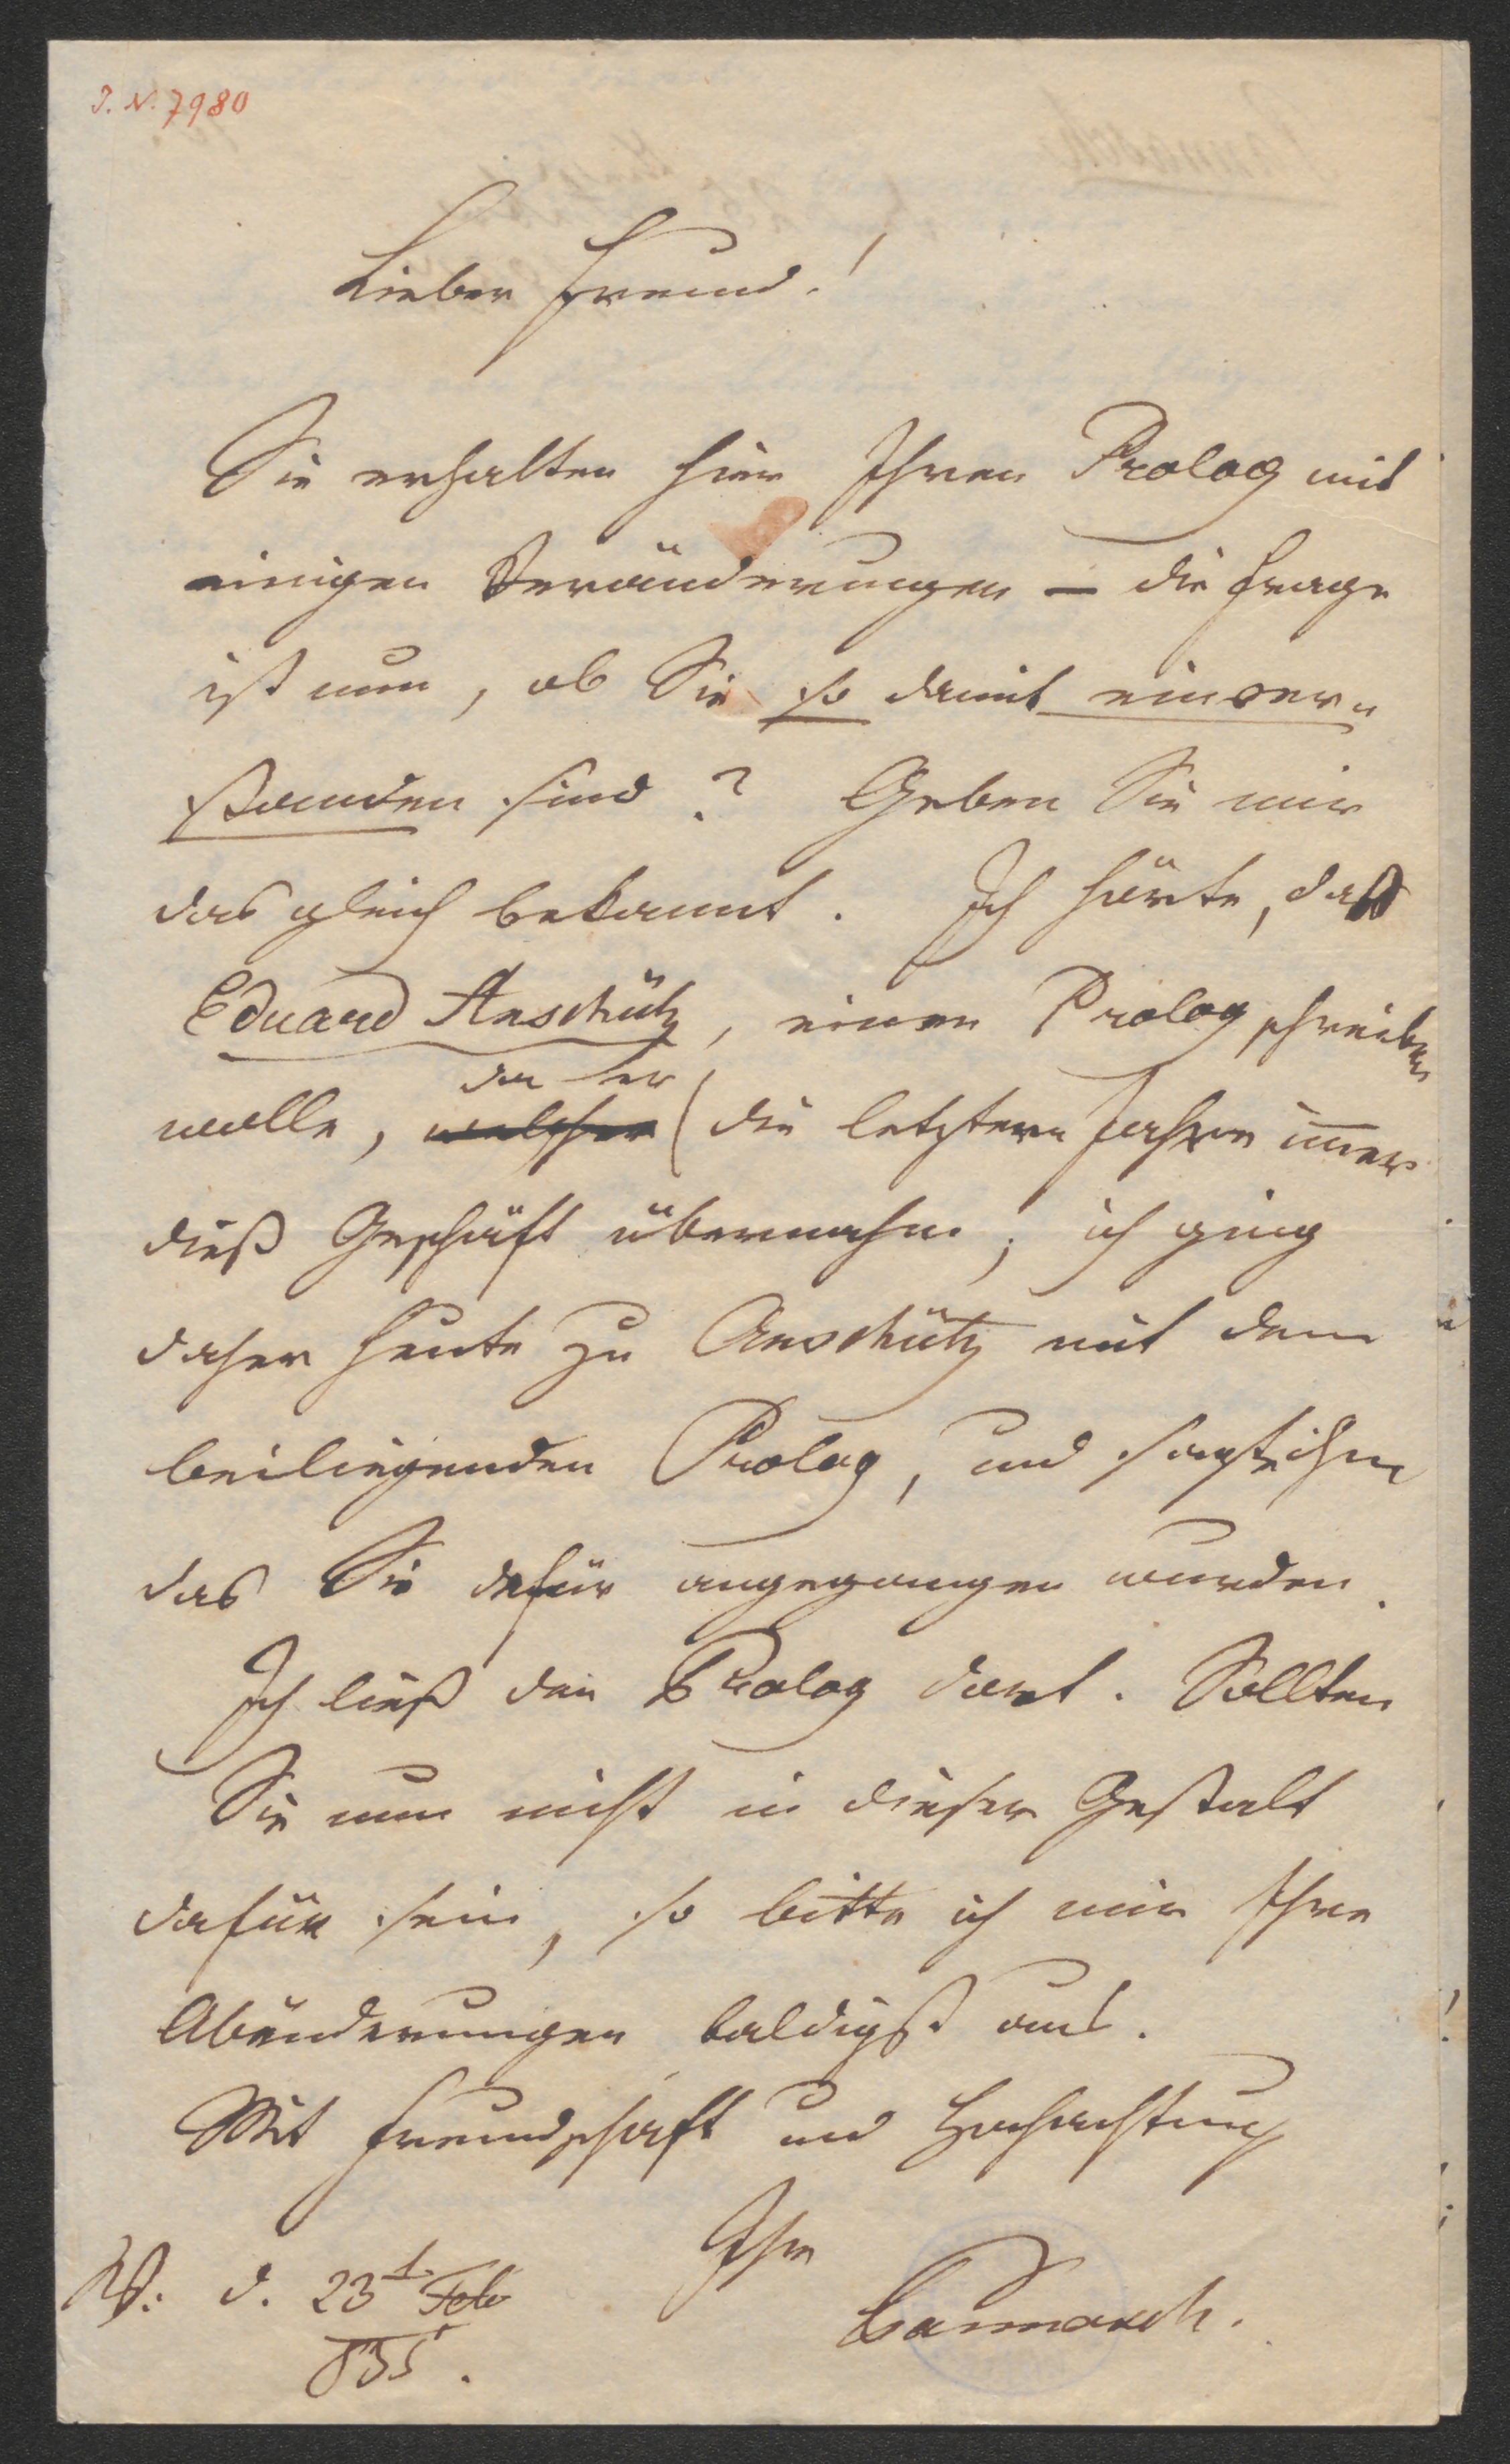 J. N. 7980
Lieber Freund!
Sie erhalten hier Ihren Prolog mit
einigen Veränderungen – die Frage
ist nun, ob Sie so damit einver„
standen sind? Geben Sie mir
das gleich bekannt. Ich hörte, daß
Eduard Anschütz, einen Prolog schreiben
da er
wolle, welcher (die letztern Jahre im̄er
dieß Geschäft übernahm; ich ging
daher heute zu Anschütz mit dem
beiliegenden Prolog, und sagte ihm
das Sie dafür angegangen wurden.
Ich ließ den Prolog dort. Sollten
Sie nun nicht in dieser Gestalt
dafür sein, so bitte ich mir Ihre
Abänderungen baldigst aus.
Mit Freundschaft und Hochachtung
Ihr
W. d. 23t Feb
835.
Carmasch.